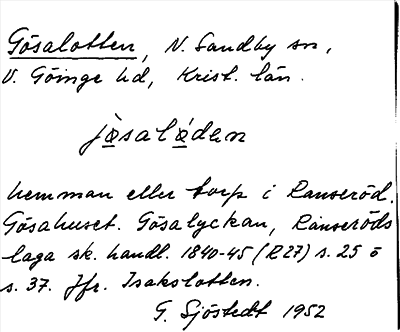 Gösalotten, N. Sandby sn,
V. Göinge hd, Krist. län.
jøsaløden
hemman eller torp i Ranseröd.
Gösahuset. Gösalyckan, Ranseröds
laga sk. handl. 1840-45 (R27) s. 25 o
s. 37. Jfr. Isakslotten.
G. Sjöstedt 1952